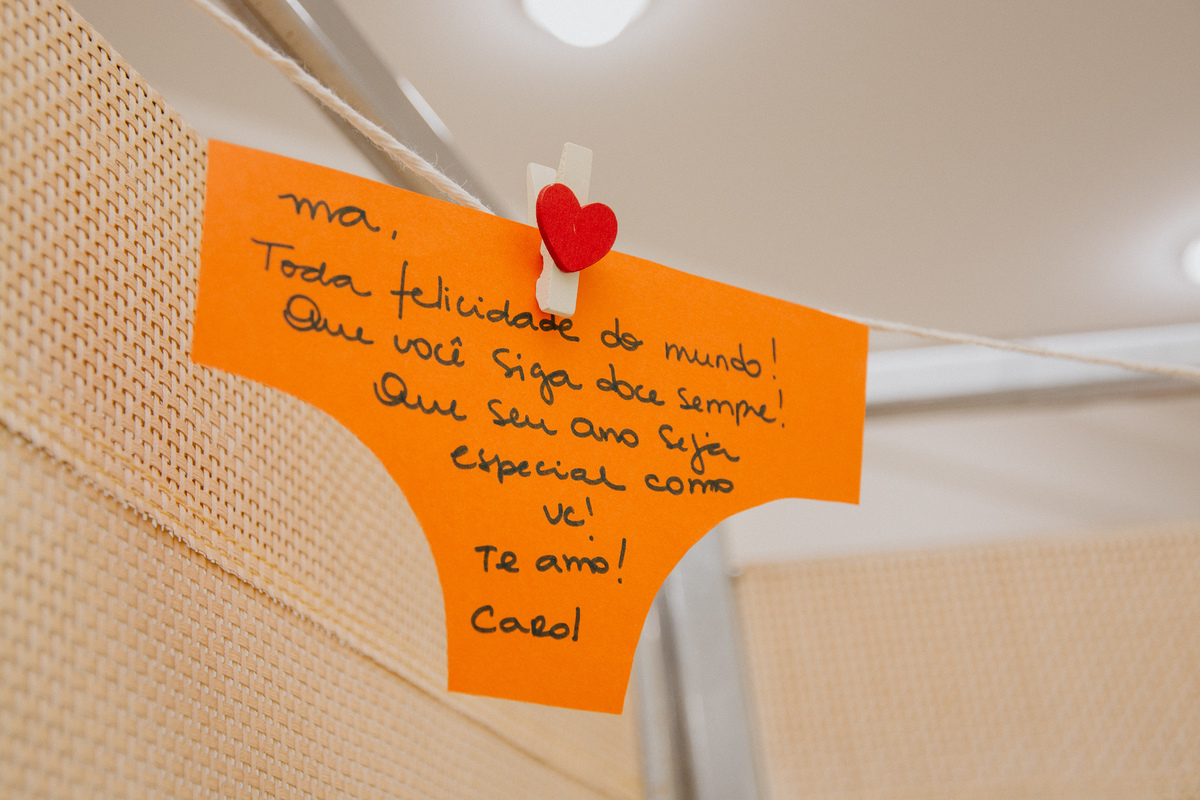 ma,
Toda felicidade do mundo!
Que você siga doce sempre!
Que seu ano seja
especial como
vc!
Te amo!
Carol